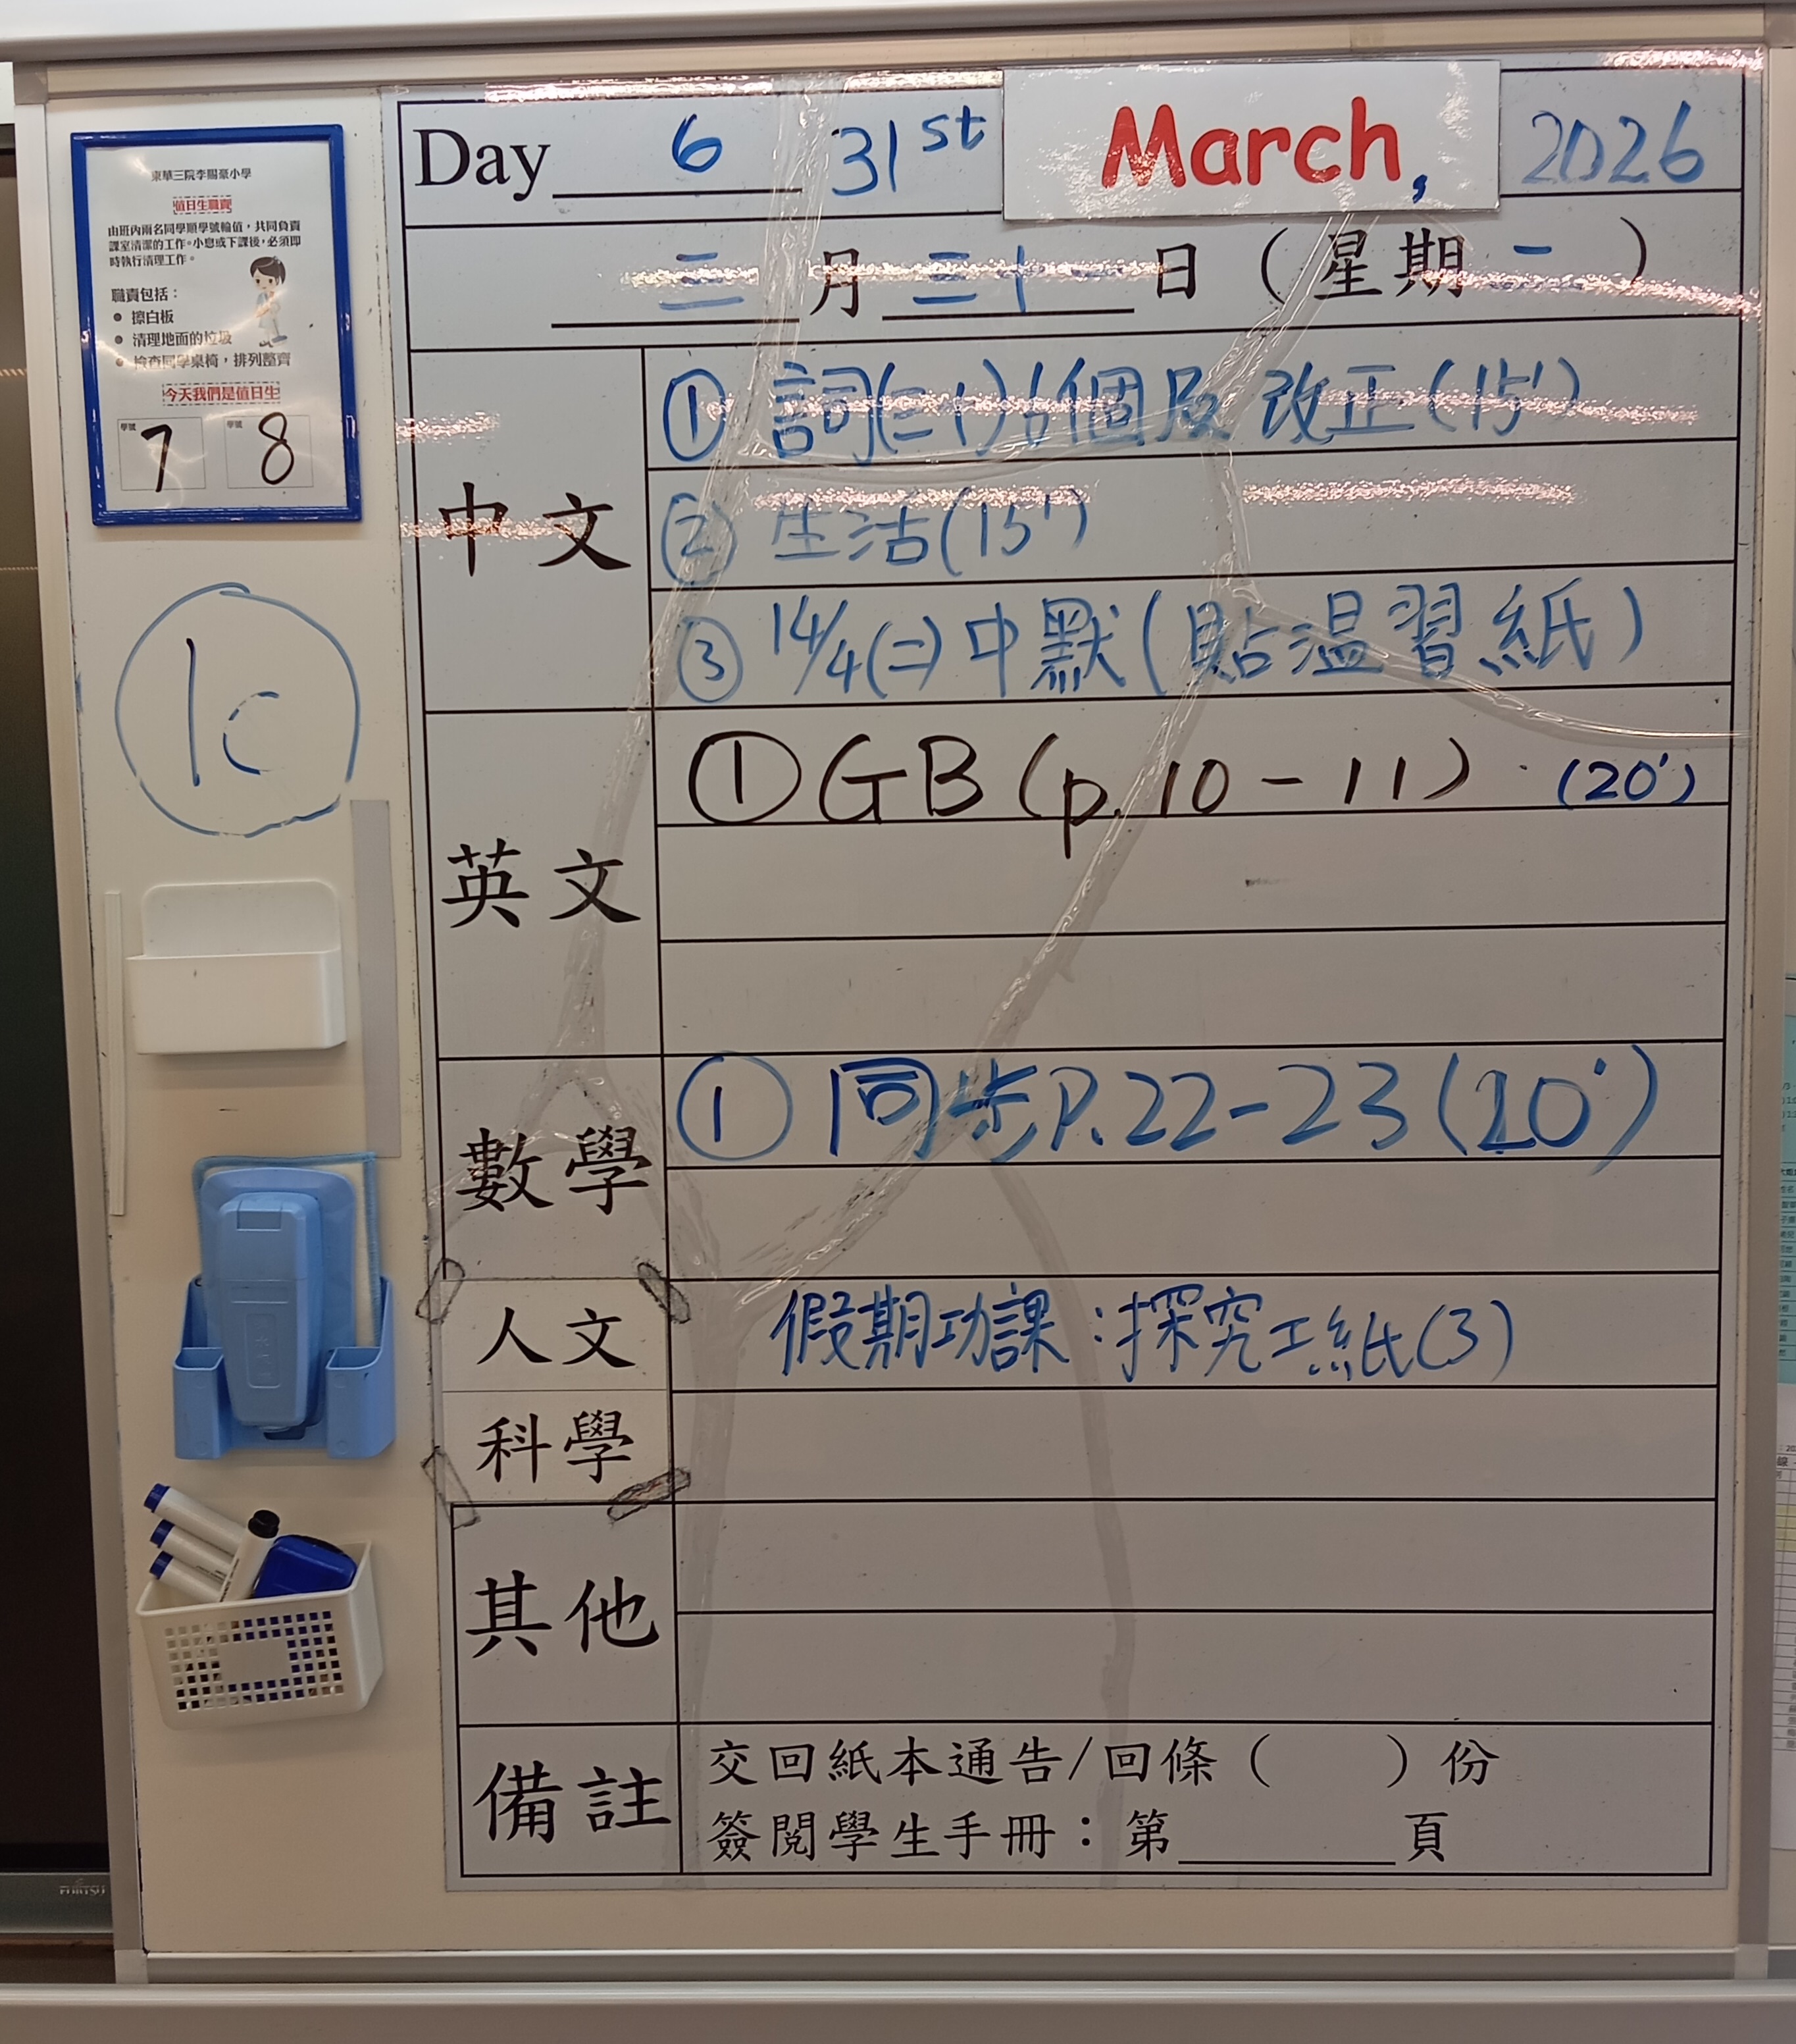 東華三院李賜豪小學
值日生職責
由班內兩名同學順學號輪值，共同負責
課室清潔的工作。小息或下課後，必須即
時執行清理工作。
職責包括：
• 擦白板
• 清理地面的垃圾
• 檢查同學桌椅，排列整齊
今天我們是值日生
學號 7 學號 8
1C
Day 6 31st March, 2026
三月三十日（星期一）
中文
① 詞(二十) 改正(15')
② 生活(15')
③ 14/4(二)中默(貼温習紙)
英文
① GB (p.10-11) (20')
數學
① 同步P.22-23(20')
人文
假期功課：探究工紙(3)
科學
其他
備註
交回紙本通告/回條（ ）份
簽閱學生手冊：第 頁